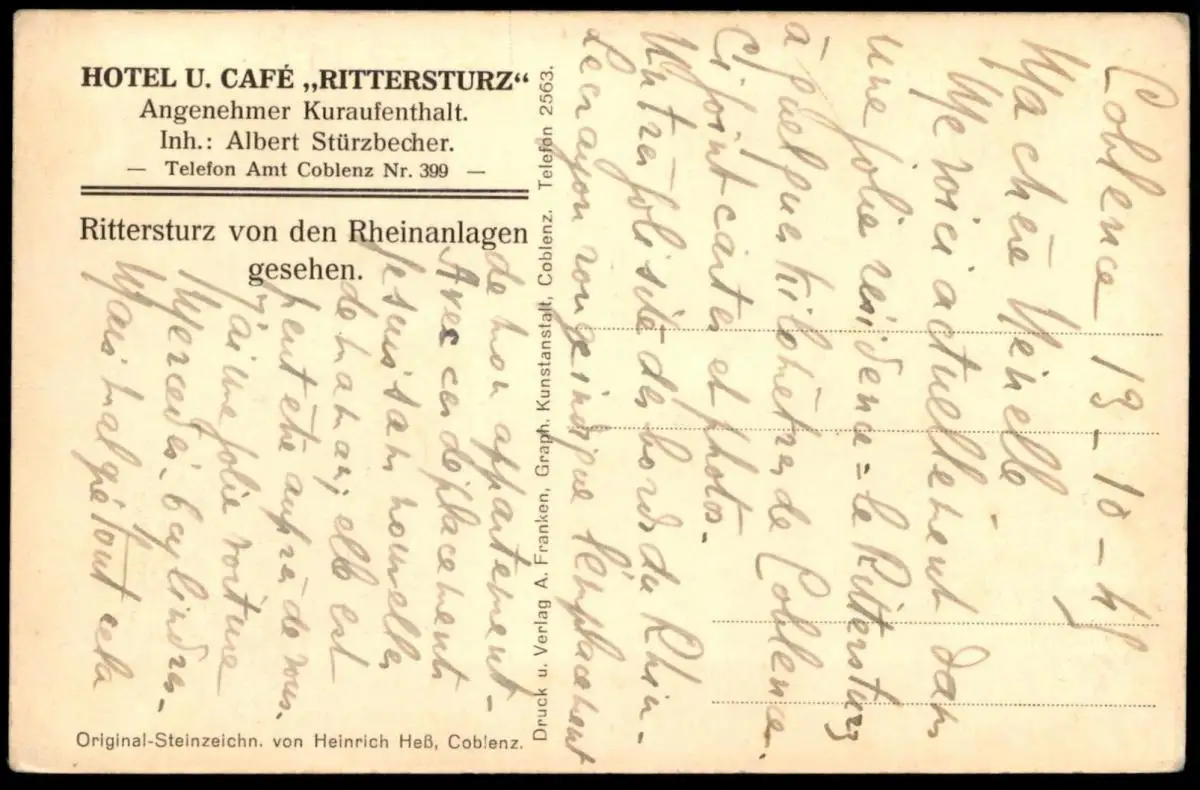 HOTEL U. CAFÉ „RITTERSTURZ“
Angenehmer Kuraufenthalt.
Inh.: Albert Stürzbecher.
— Telefon Amt Coblenz Nr. 399 —
Rittersturz von den Rheinanlagen
gesehen.
Original-Steinzeichn. von Heinrich Heß, Coblenz.
Druck u. Verlag A. Franken, Graph. Kunstanstalt, Coblenz. Telefon 2563.
Coblence 19-10-45
Ma chère Neinelle
Me voici actuellement dans
une jolie résidence = le Rittersturz
à quelques kilomètres de Coblence.
Ci joint cartes et photos.
Un très joli site des bords du Rhin.
Le crayon rouge indique l'emplacement
de mon appartement.
Avec ces déplacements
je suis sans nouvelles
de maman; elle est
peut être auprès de vous.
j'ai une jolie voiture
Mercedes. 6 cylindres.
Mais malgré tout cela